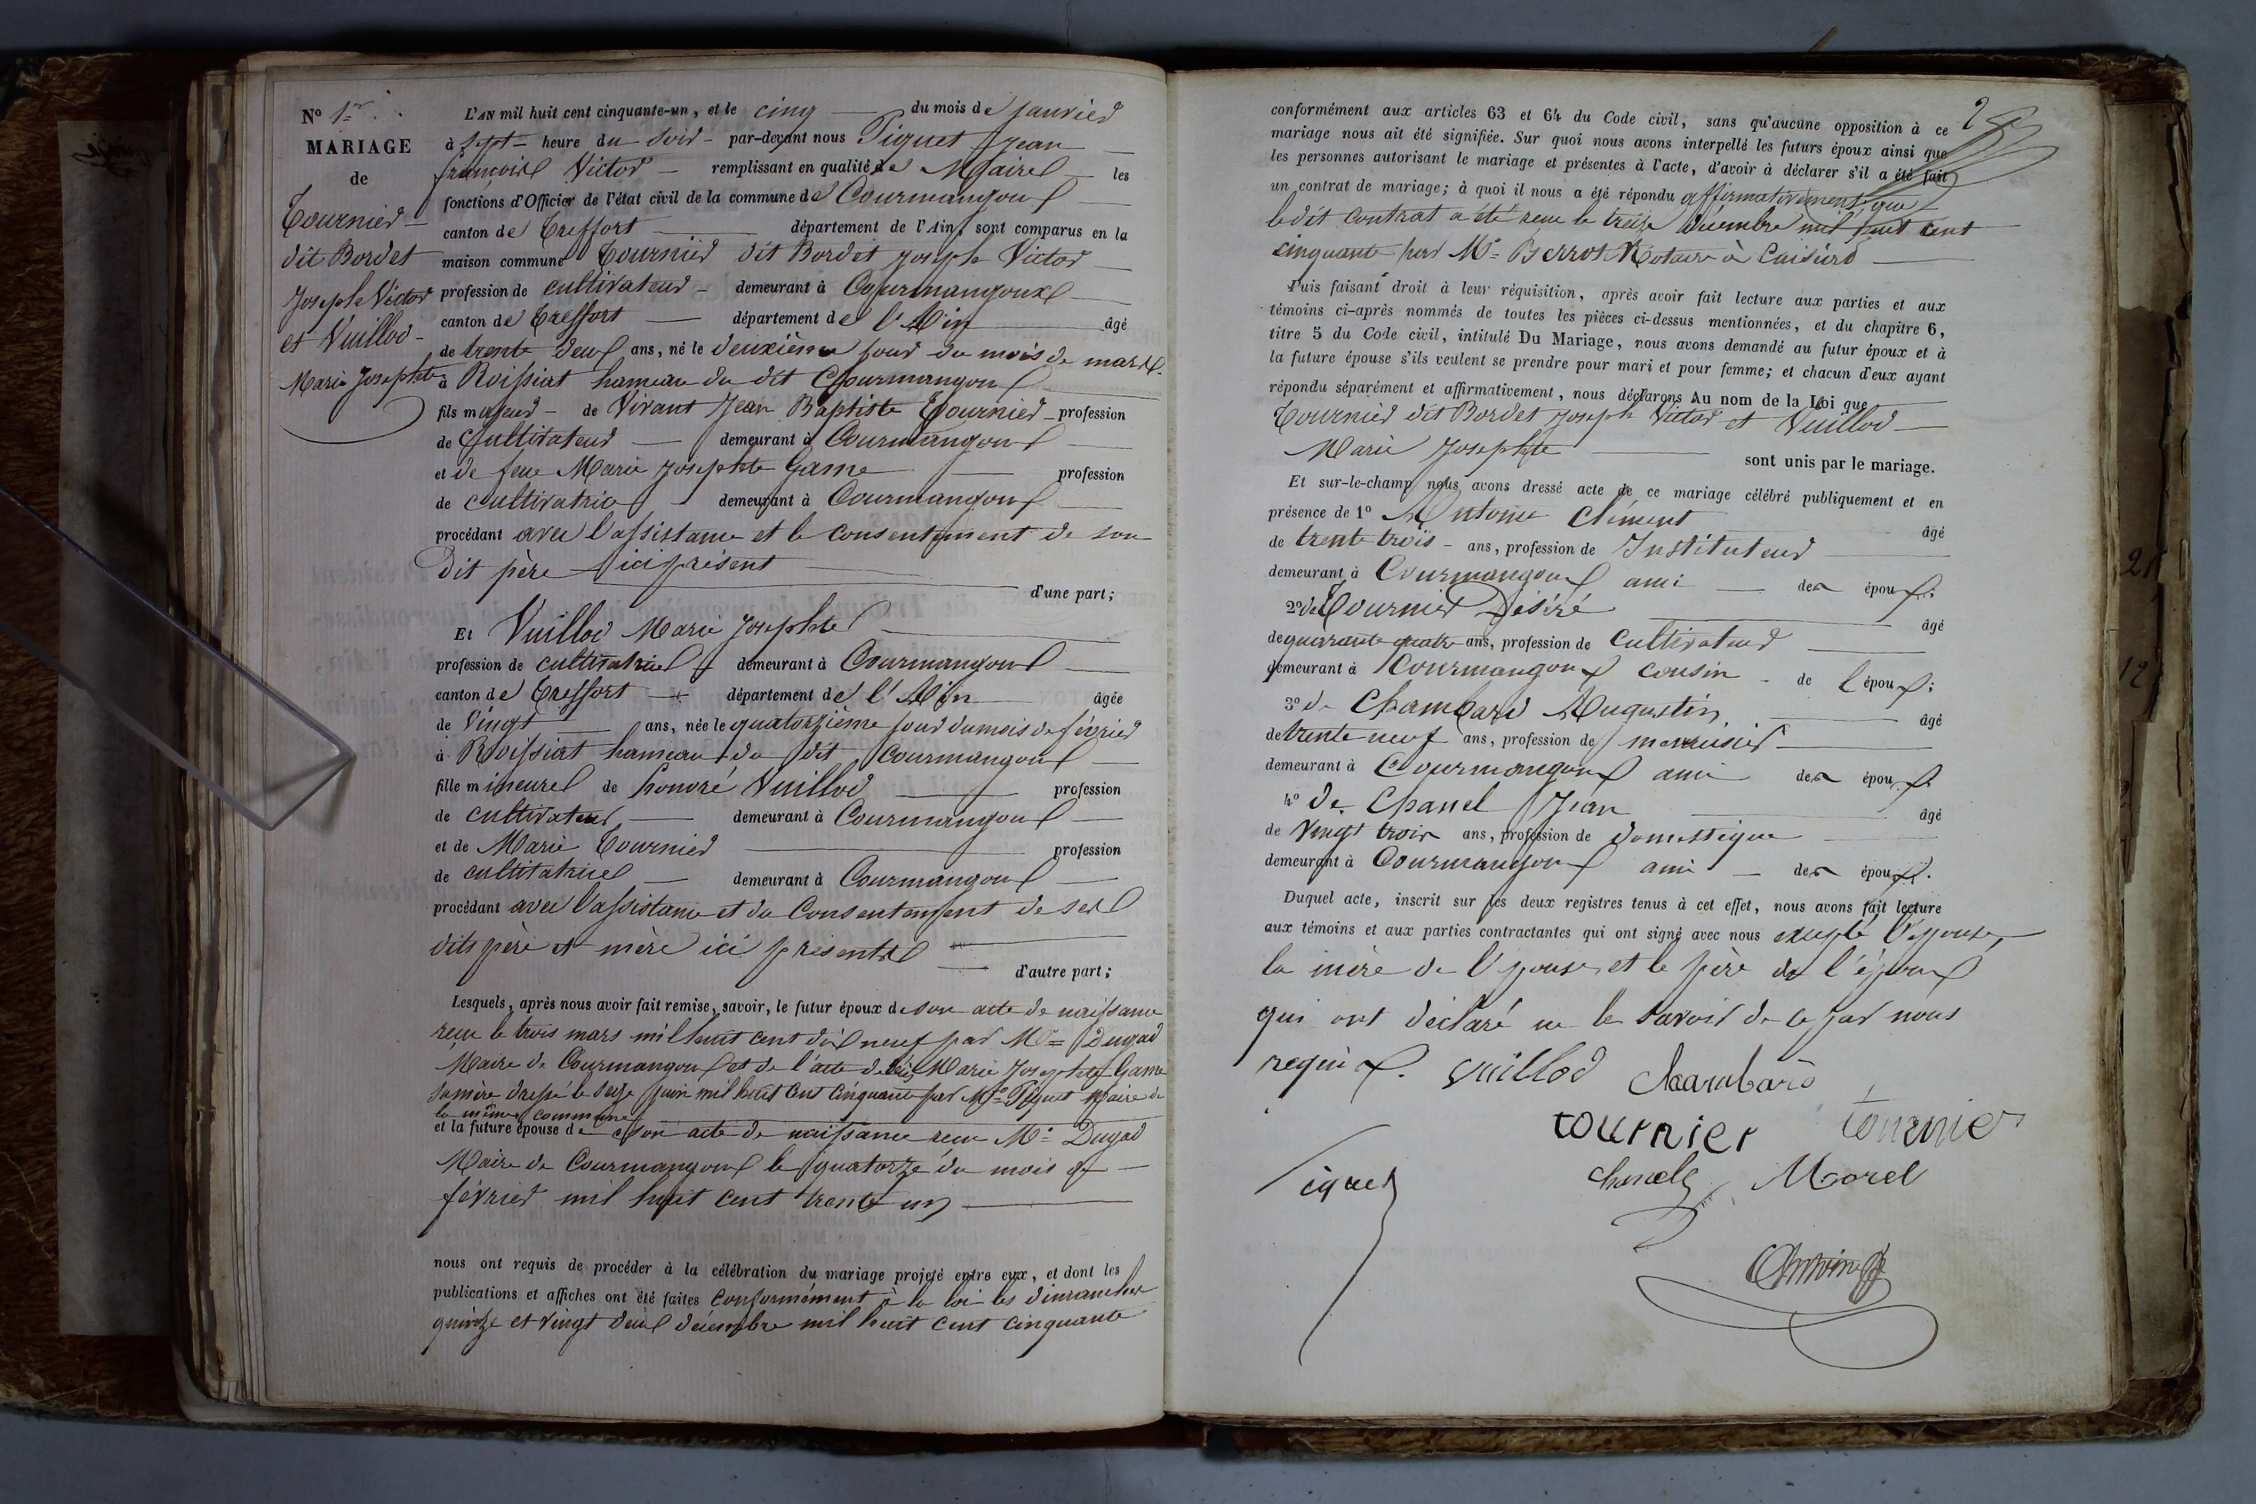 N° 1er
MARIAGE
de
Tournier
dit Bordet
Joseph Victor
et Vuillod
Marie Josephte
L'AN mil huit cent cinquante-un, et le cinq du mois de janvier
à sept heure du soir par-devant nous Piquet Jean
françois Victor remplissant en qualité de Maire les
fonctions d'Officier de l'état civil de la commune de Courmangoux
canton de Treffort département de l'Ain, sont comparus en la
maison commune Tournier dit Bordet joseph Victor
profession de cultivateur demeurant à Courmangoux
canton de Treffort département de l'Ain âgé
de trente deux ans, né le deuxième jour du mois de mars
à Roissiat hameau du dit Courmangoux
fils majeur de Vivant Jean Baptiste Tournier profession
de Cultivateur demeurant à Courmangoux
et de feue Marie Josephte Game profession
de cultivatrice demeurant à Courmangoux
procédant avec l'assistance et le consentement de son
dit père ici présent
d'une part;
Et Vuillod Marie Josephte
profession de cultivatrice demeurant à Courmangoux
canton de Treffort département de l'Ain âgée
de vingt ans, née le quatorzième jour du mois de février
à Roissiat hameau du dit Courmangoux
fille mineure de honoré Vuillod profession
de cultivateur demeurant à Courmangoux
et de Marie Tournier profession
de cultivatrice demeurant à Courmangoux
procédant avec l'assistance et du Consentement de ses
dits père et mère ici présents
d'autre part;
Lesquels, après nous avoir fait remise, savoir, le futur époux de son acte de naissance
reçu le trois mars mil huit cent dix neuf par Mr Dugad
Maire de Courmangoux et de l'acte de décès Marie Josephte Game
sa mère dressé le seize juin mil huit cent cinquante par Mr Piquet Maire de
la même commune
et la future épouse de son acte de naissance reçu Mr Dugad
Maire de Courmangoux le quatorze du mois de
février mil huit cent trente un
nous ont requis de procéder à la célébration du mariage projeté entre eux, et dont les
publications et affiches ont été faites conformément à la loi les dimanches
quinze et vingt deux décembre mil huit cent cinquante
2
conformément aux articles 63 et 64 du Code civil, sans qu'aucune opposition à ce
mariage nous ait été signifiée. Sur quoi nous avons interpellé les futurs époux ainsi que
les personnes autorisant le mariage et présentes à l'acte, d'avoir à déclarer s'il a été fait
un contrat de mariage; à quoi il nous a été répondu affirmativement que
le dit contrat a été reçu le treize décembre mil huit cent
cinquante par Mr Perrot Notaire à Cuisiard
Puis faisant droit à leur réquisition, après avoir fait lecture aux parties et aux
témoins ci-après nommés de toutes les pièces ci-dessus mentionnées, et du chapitre 6,
titre 5 du Code civil, intitulé Du Mariage, nous avons demandé au futur époux et à
la future épouse s'ils veulent se prendre pour mari et pour femme; et chacun d'eux ayant
répondu séparément et affirmativement, nous déclarons Au nom de la Loi que
Tournier dit Bordet joseph Victor et Vuillod
Marie Josephte sont unis par le mariage.
Et sur-le-champ nous avons dressé acte de ce mariage célébré publiquement et en
présence de 1° Antoine Clément âgé
de trente trois ans, profession de Instituteur
demeurant à Courmangoux ami des époux;
2° de Tournier Désiré âgé
de quarante quatre ans, profession de cultivateur
demeurant à Courmangoux cousin de l'époux;
3° de Chambard Augustin âgé
de trente neuf ans, profession de menuisier
demeurant à Courmangoux ami des époux
4° de Chanel Jean âgé
de vingt trois ans, profession de domestique
demeurant à Courmangoux ami des époux.
Duquel acte, inscrit sur les deux registres tenus à cet effet, nous avons fait lecture
aux témoins et aux parties contractantes qui ont signé avec nous excepté l'épouse,
la mère de l'épouse et le père de l'époux
qui ont déclaré ne le savoir de ce par nous
requis.
vuillod Chambard
tournier tournier
chanel Morel
Piquet